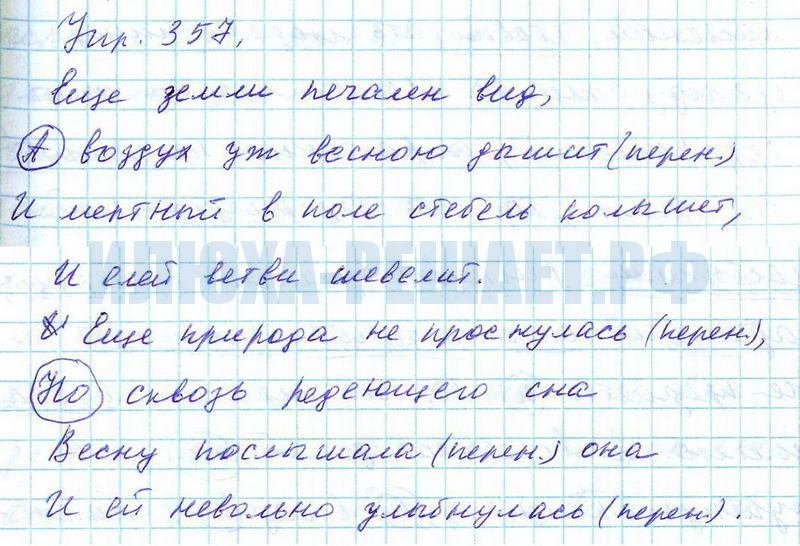 Упр. 357.
Еще земли печален вид,
А воздух уж весною дышит (перен.)
И мертный в поле стебель колышет,
ИЛЮХА-РЕШАЕТ.РФ
И елей ветви шевелит.
Еще природа не проснулась (перен.),
Но сквозь редеющего сна
Весну послышала (перен.) она
И ей невольно улыбнулась (перен.).